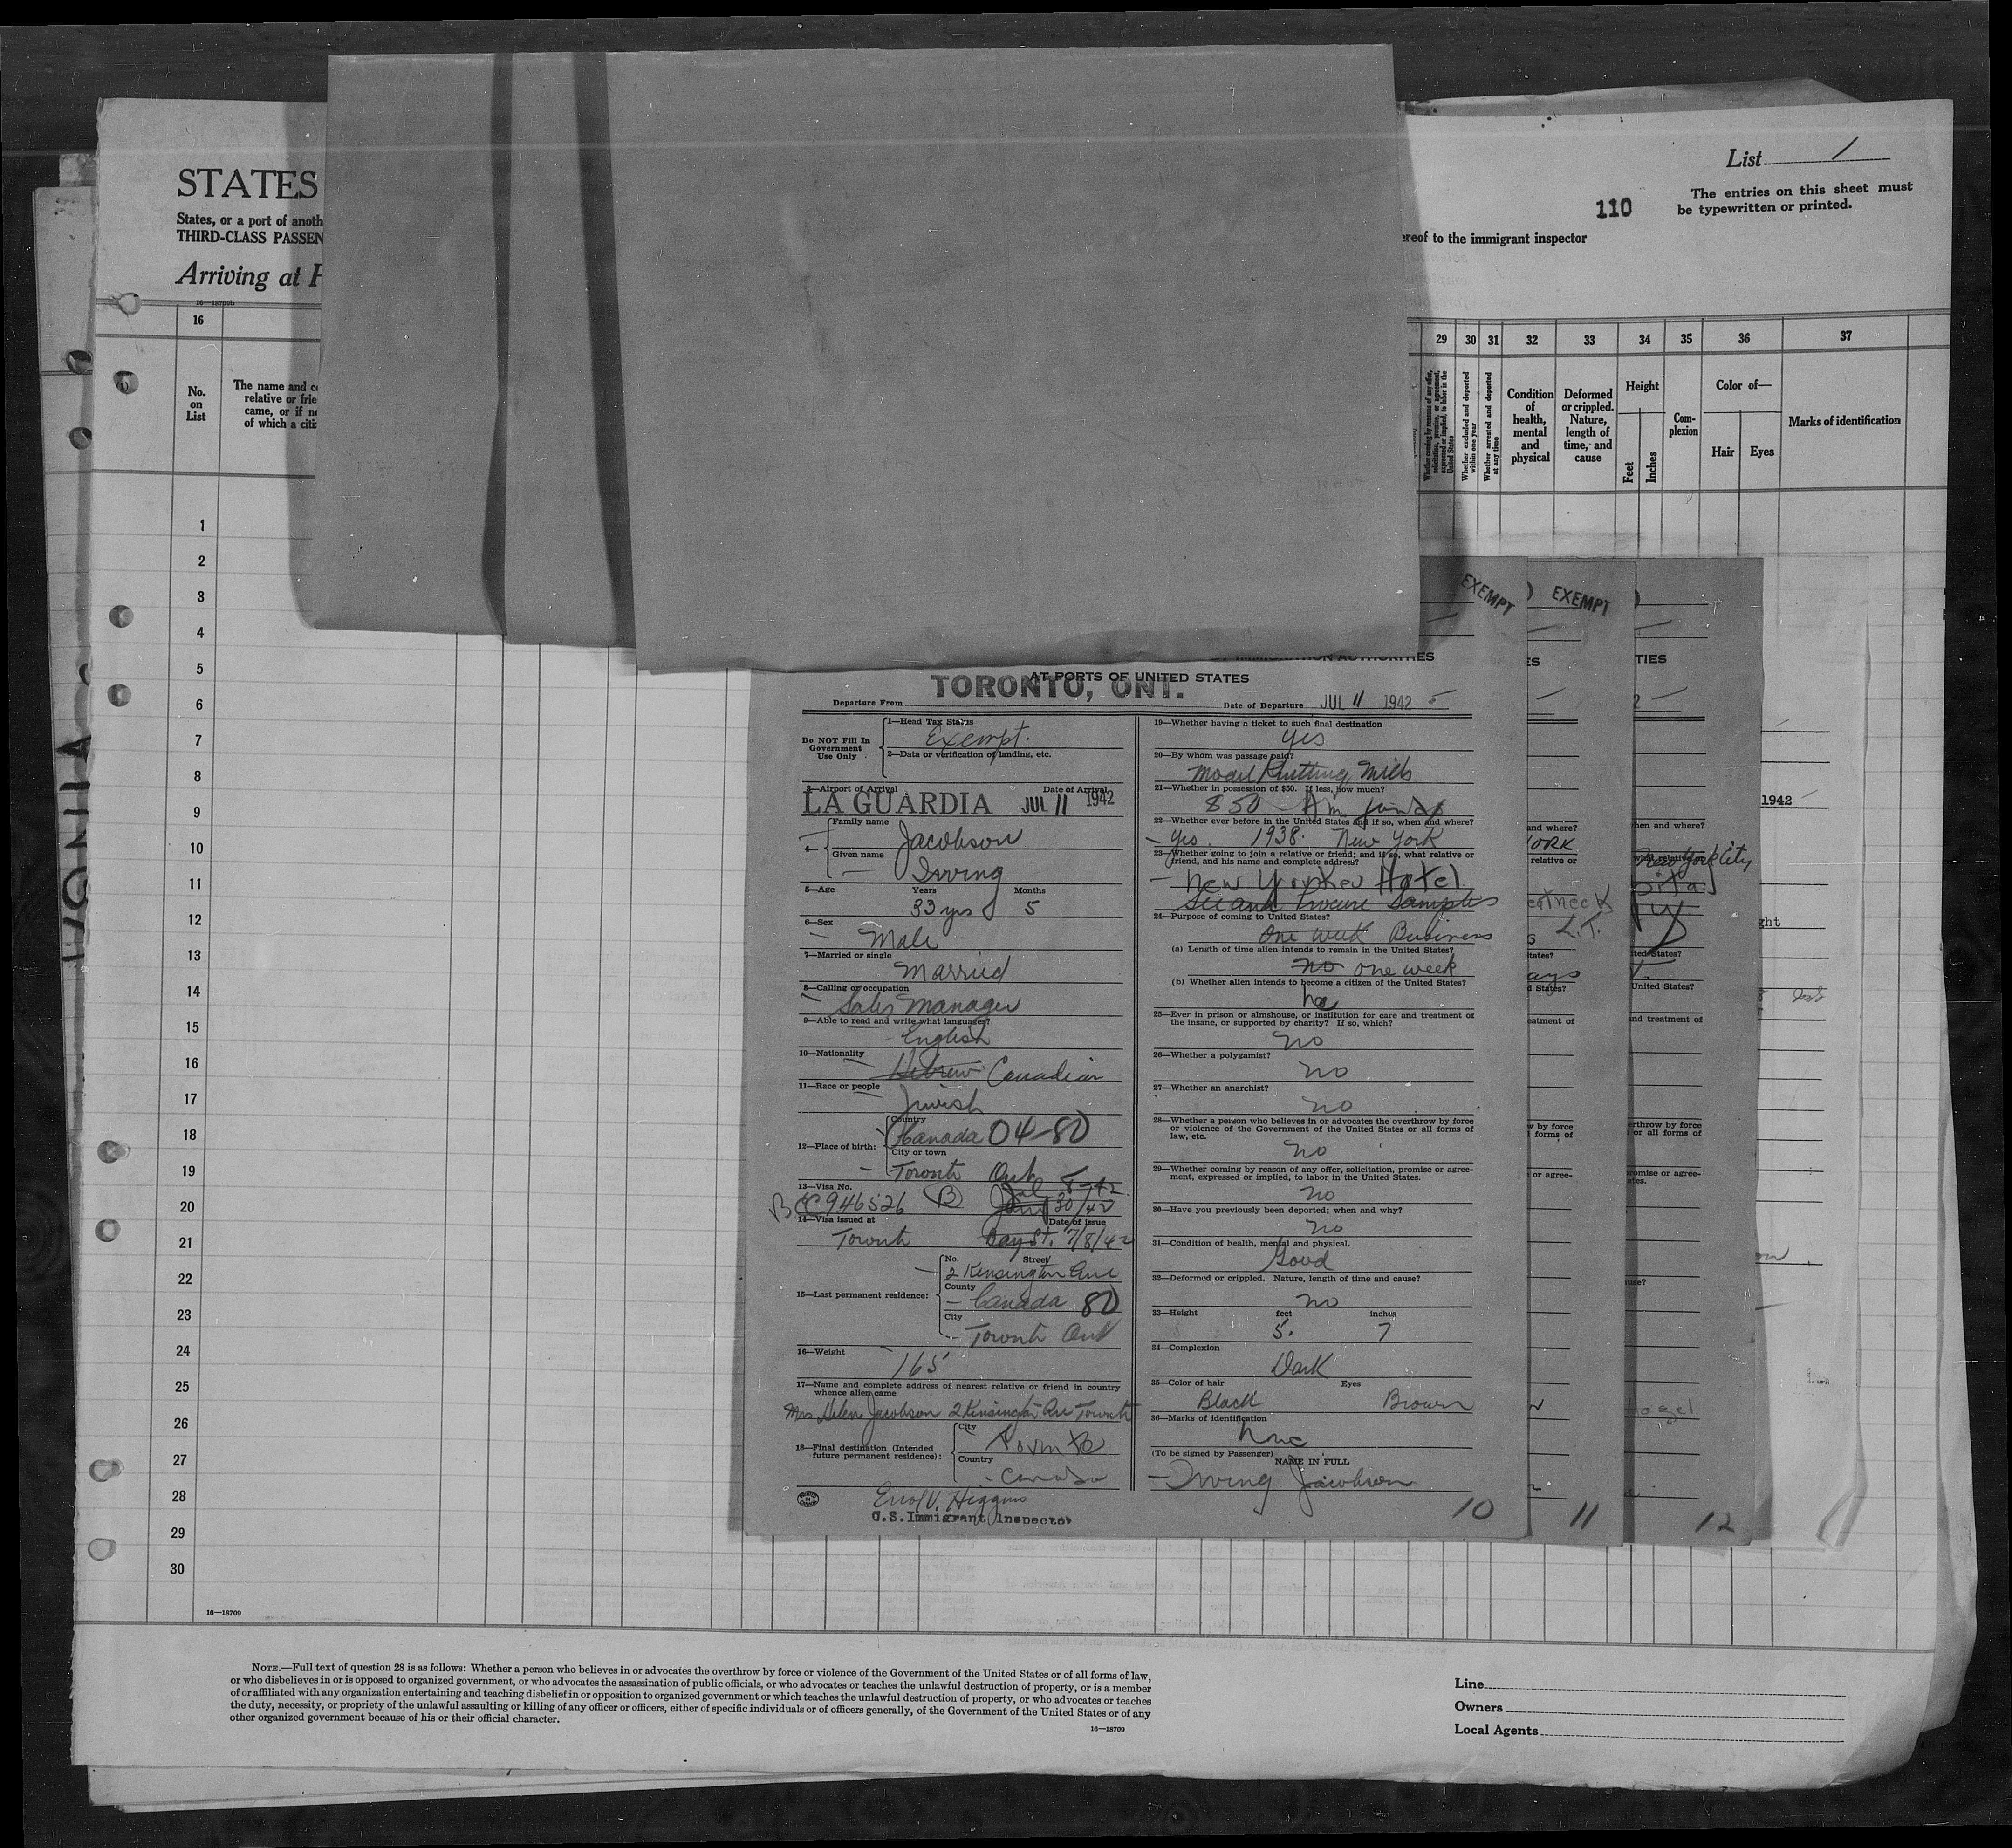 List 1
110
The entries on this sheet must
be typewritten or printed.
STATES
States, or a port of anoth
THIRD-CLASS PASSEN
ereof to the immigrant inspector
Arriving at
16 29 30 31 32 33 34 35 36 37
No.
on
List
The name and
relative or frie
came, or if
of which a citi
Whether excluded and deported
within one year
Whether arrested and deported
at any time
Condition
of
health,
mental
and
physical
Deformed
or crippled.
Nature,
length of
time, and
cause
Height
Feet
Inches
Com-
plexion
Color of—
Hair Eyes
Marks of identification
1
2
3
4
5
6
7
8
9
10
11
12
13
14
15
16
17
18
19
20
21
22
23
24
25
26
27
28
29
30
16—18709
EXEMPT
EXEMPT
AT PORTS OF UNITED STATES
TORONTO, ONT.
Departure From
Date of Departure JUL 11 1942
Do NOT Fill In
Government
Use Only
1—Head Tax Status
Exempt.
2—Data or verification of landing, etc.
3—Airport of Arrival Date of Arrival
LA GUARDIA JUL 11 1942
4—
Family name
Jacobson
Given name
Irving
5—Age Years Months
33 yrs 5
6—Sex
Male
7—Married or single
Married
8—Calling or occupation
Sales Manager
9—Able to read and write what languages?
English
10—Nationality
Hebrew Canadian
11—Race or people
Jewish
12—Place of birth:
Country
Canada 04-80
City or town
Toronto Ont
13—Visa No. Jul 8-42
B CC946526 B 30/42
14—Visa issued at Date of issue
Toronto Bay St. 7/8/42
No. Street
2 Kensington Ave
15—Last permanent residence:
County
Canada 80
City
Toronto Ont
16—Weight
165
17—Name and complete address of nearest relative or friend in country
whence alien came
Mrs Helen Jacobson 2 Kensington Ave Toronto
18—Final destination (Intended
future permanent residence):
City
Toronto
Country
Canada
Errol V. Higgins
U.S. Immigrant Inspector
19—Whether having a ticket to such final destination
yes
20—By whom was passage paid?
Model Knitting Mills
21—Whether in possession of $50. If less, how much?
$50 Am funds
22—Whether ever before in the United States and if so, when and where?
Yes. 1938. New York
23—Whether going to join a relative or friend; and if so, what relative or
friend, and his name and complete address?
New Yorker Hotel
See and Procure Samples
24—Purpose of coming to United States?
One week Business
(a) Length of time alien intends to remain in the United States?
no one week
(b) Whether alien intends to become a citizen of the United States?
no
25—Ever in prison or almshouse, or institution for care and treatment of
the insane, or supported by charity? If so, which?
no
26—Whether a polygamist?
no
27—Whether an anarchist?
no
28—Whether a person who believes in or advocates the overthrow by force
or violence of the Government of the United States or all forms of
law, etc.
no
29—Whether coming by reason of any offer, solicitation, promise or agree-
ment, expressed or implied, to labor in the United States.
no
30—Have you previously been deported; when and why?
no
31—Condition of health, mental and physical.
Good
32—Deformed or crippled. Nature, length of time and cause?
no
33—Height feet inches
5. 7
34—Complexion
Dark
35—Color of hair Eyes
Black Brown
36—Marks of identification
none
(To be signed by Passenger)
NAME IN FULL
Irving Jacobson
10
11
12
TIES
1942
and where?
YORK
relative or
L.I.
States?
ays
eatment of
w by force
forms of
or agree-
hen and where?
New York City
ted States?
United States?
nd treatment of
erthrow by force
or all forms of
omise or agree-
ates.
NOTE.—Full text of question 28 is as follows: Whether a person who believes in or advocates the overthrow by force or violence of the Government of the United States or of all forms of law,
or who disbelieves in or is opposed to organized government, or who advocates the assassination of public officials, or who advocates or teaches the unlawful destruction of property, or is a member
of or affiliated with any organization entertaining and teaching disbelief in or opposition to organized government or which teaches the unlawful destruction of property, or who advocates or teaches
the duty, necessity, or propriety of the unlawful assaulting or killing of any officer or officers, either of specific individuals or of officers generally, of the Government of the United States or of any
other organized government because of his or their official character.
16—18709
Line
Owners
Local Agents